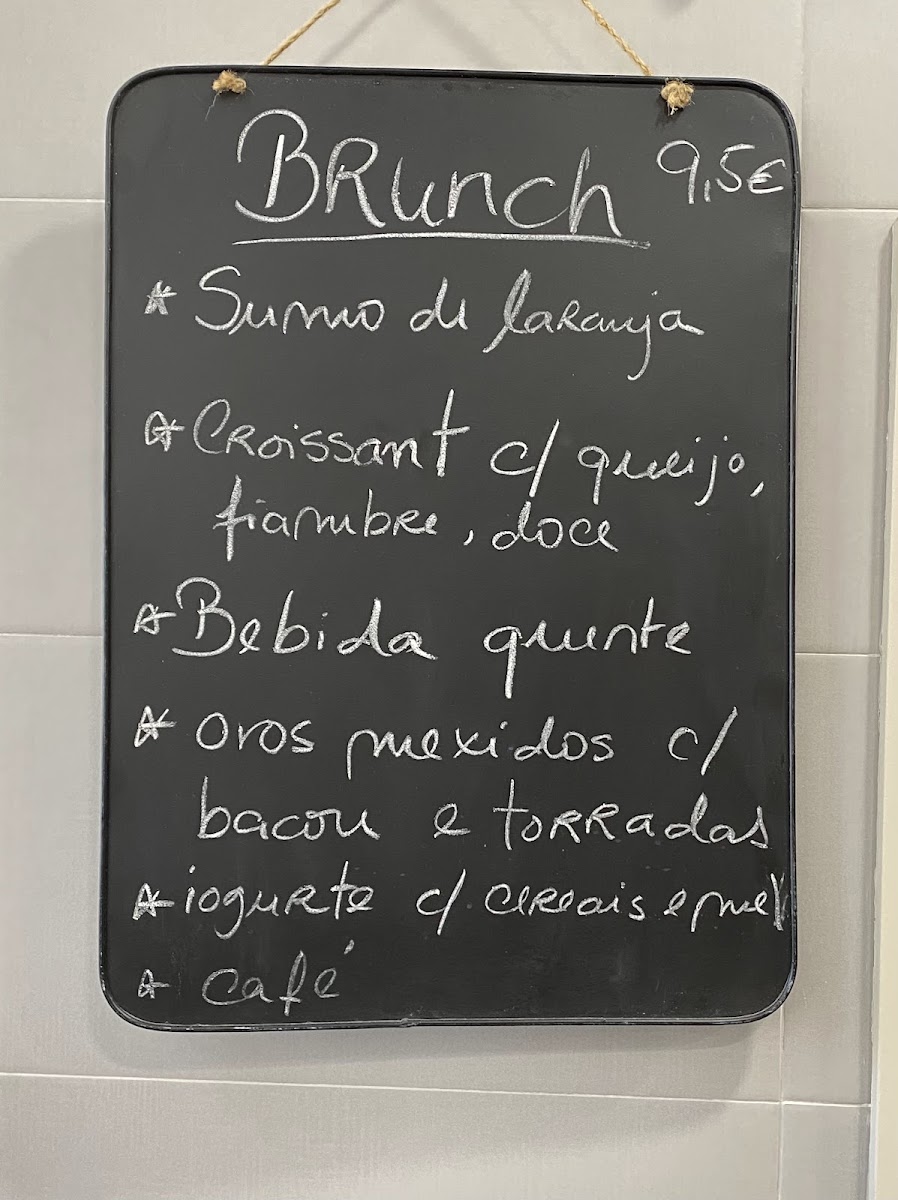 BRunch 9,5€
* Sumo de laranja
* Croissant c/ queijo,
fiambre, doce
* Bebida quente
* ovos mexidos c/
bacon e torradas
* iogurte c/ cereais e mel
* café